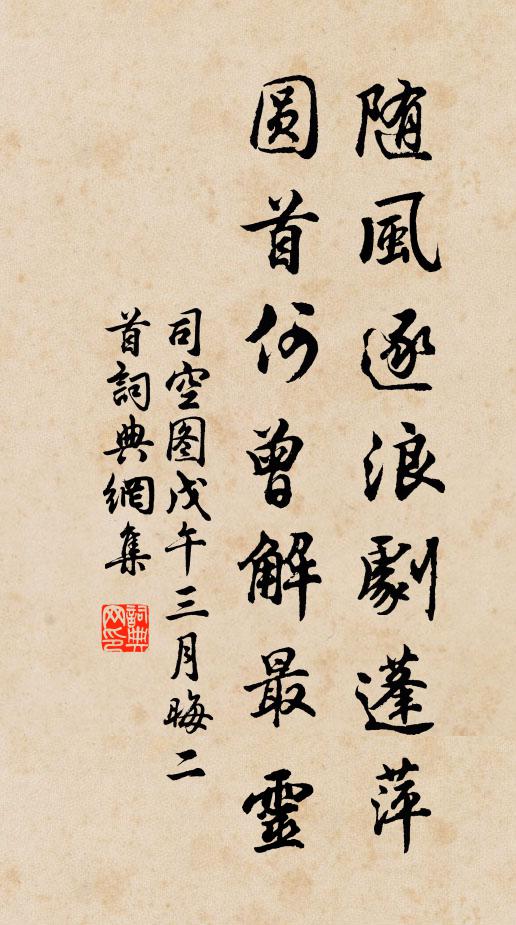 随風逐浪劇蓬萍
圓首何曾解最靈
司空图戊午三月晦二
首詞典網集
詞典网印